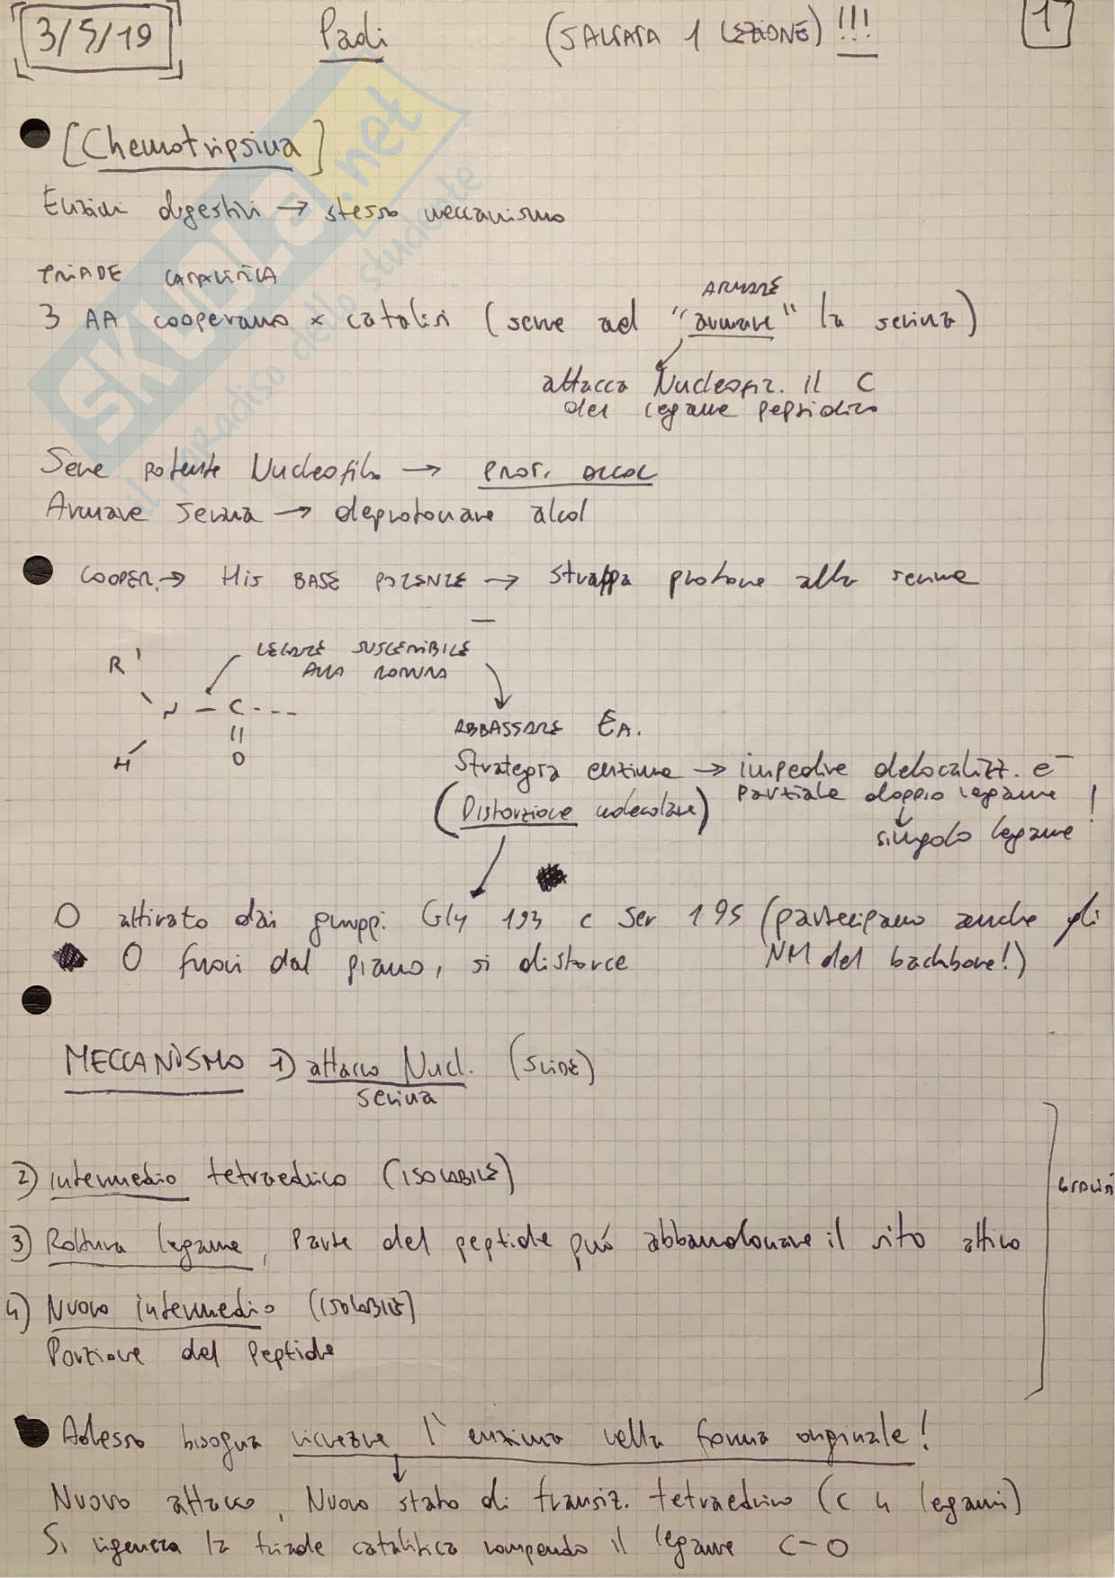 3/5/19 Paoli (SALTATA 1 LEZIONE) !!! 1
[Chemotripsina]
Enzimi digestivi → stesso meccanismo
TRIADE CATALITICA
ARMARE
3 AA cooperano x catalisi (serve ad "armare" la serina)
attacca Nucleofil. il C
del legame peptidico
Serve potente Nucleofilo → PROT. ALCOL
Armare serina → deprotonare alcol
COOPER. → His BASE POTENTE → strappa protone alla serina
LEGAME SUSCETTIBILE
ALLA ROTTURA
R'
N – C - - -
||
H O
ABBASSARE EA.
Strategia enzima → impedire delocalizz. e⁻
(Distorsione molecolare) Parziale doppio legame !
↓
singolo legame
O attirato dai gruppi Gly 193 e Ser 195 (partecipano anche gli
O fuori dal piano, si distorce NH del backbone!)
MECCANISMO 1) attacco Nucl. (SLIDE)
serina
2) intermedio tetraedrico (ISOLABILE)
3) Rottura legame, Parte del peptide può abbandonare il sito attivo
4) Nuovo intermedio (ISOLABILE)
Porzione del Peptide
Adesso bisogna ricreare l'enzima nella forma originale!
Nuovo attacco, Nuovo stato di transiz. tetraedrico (C 4 legami)
Si rigenera la triade catalitica rompendo il legame C-O
SKUOLA.net
il paradiso dello studente